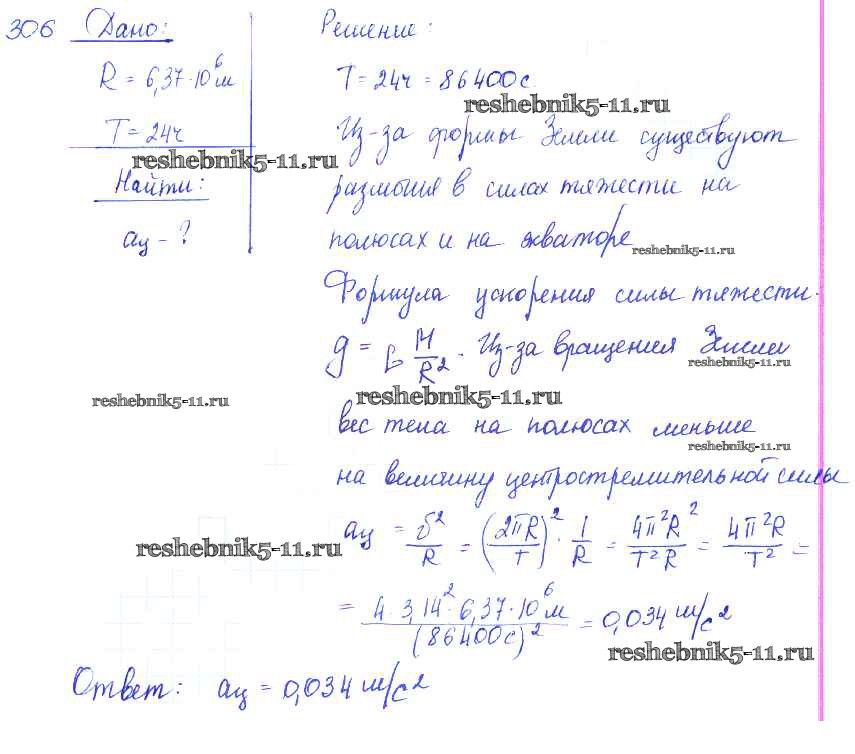 306 Дано:
R = 6,37·10⁶ м
T = 24ч
reshebnik5-11.ru
Найти:
aц - ?
Решение:
T = 24ч = 86400с
reshebnik5-11.ru
Из-за формы Земли существуют
различия в силах тяжести на
полюсах и на экваторе
reshebnik5-11.ru
Формула ускорения силы тяжести.
g = G M/R². Из-за вращения Земли
reshebnik5-11.ru
reshebnik5-11.ru
reshebnik5-11.ru
вес тела на полюсах меньше
reshebnik5-11.ru
на величину центростремительной силы
aц = v²/R = (2πR/T)² · 1/R = 4π²R²/T²R = 4π²R/T² =
reshebnik5-11.ru
= 4·3,14²·6,37·10⁶м/(86400с)² = 0,034 м/с²
reshebnik5-11.ru
Ответ: aц = 0,034 м/с²